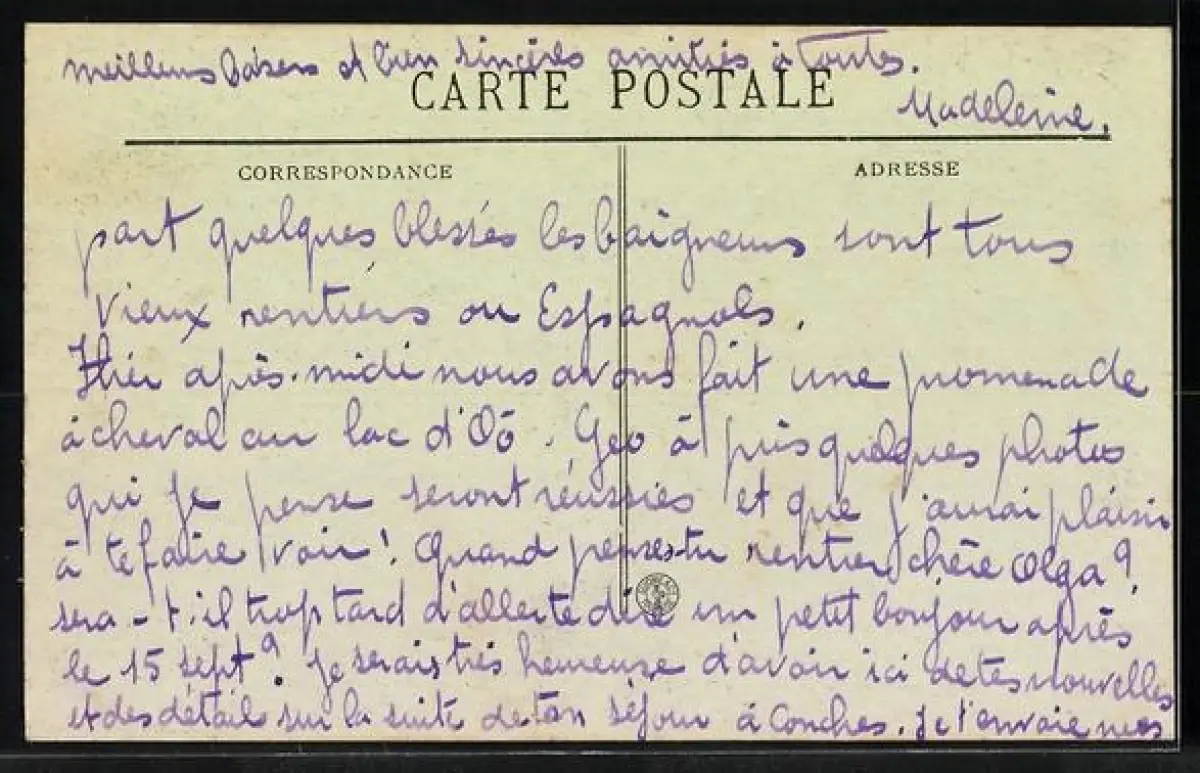 meilleurs baisers et bien sincères amitiés à toutes.
CARTE POSTALE
Madeleine.
CORRESPONDANCE
ADRESSE
part quelques blessés les baigneurs sont tous
vieux rentiers ou Espagnols.
Hier après-midi nous avons fait une promenade
à cheval au lac d'Oô. Géo à pris quelques photos
qui je pense seront réussies et que j'aurai plaisir
à te faire voir! Quand penses-tu rentrer chère Olga?
sera-t-il trop tard d'aller te dire un petit bonjour après
le 15 sept? Je serais très heureuse d'avoir ici de tes nouvelles
et des détails sur la suite de ton séjour à Conches. Je t'envoie mes